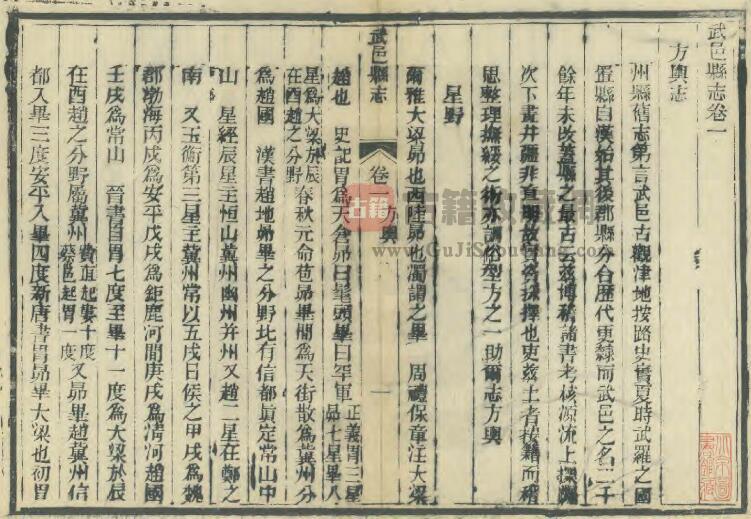 武邑縣志卷一
方輿志
州縣舊志第言武邑古觀津地按路史實夏時武羅之國
置縣自漢始其後郡縣分合歷代更隸而武邑之名二千
餘年未改蓋縣之最古云茲博稽諸書考核源流上探
次下畫井疆非直明故實為採擇也吏茲土者按籍而稽
思整理撫綏之術亦訓俗型方之一助爾志方輿
星野
爾雅大梁昴也西陸昴也濁謂之畢 周禮保章注大梁
武邑縣志 卷一方輿 一
趙也 史記胃為天倉昴曰髦頭畢曰罕車 正義胃三星
昴七星畢八
星為大梁於辰
在酉趙之分野 春秋元命苞昴畢間為天街散為冀州分
為趙國 漢書趙地昴畢之分野北有信都真定常山中
山 星經辰星主恒山冀州幽州并州又趙二星在鄭之
南 又玉衡第三星主冀州常以五戌日候之甲戌為魏
郡渤海丙戌為安平戊戌為鉅鹿河間庚戌為清河趙國
壬戌為常山 晉書自胃七度至畢十一度為大梁於辰
在酉趙之分野屬冀州 費直起婁十度
蔡邕起胃一度 又昴畢趙冀州信
都入畢三度安平入畢四度新唐書胃昴畢大梁也初胃
古籍收藏网
www.GuJiShouCang.com